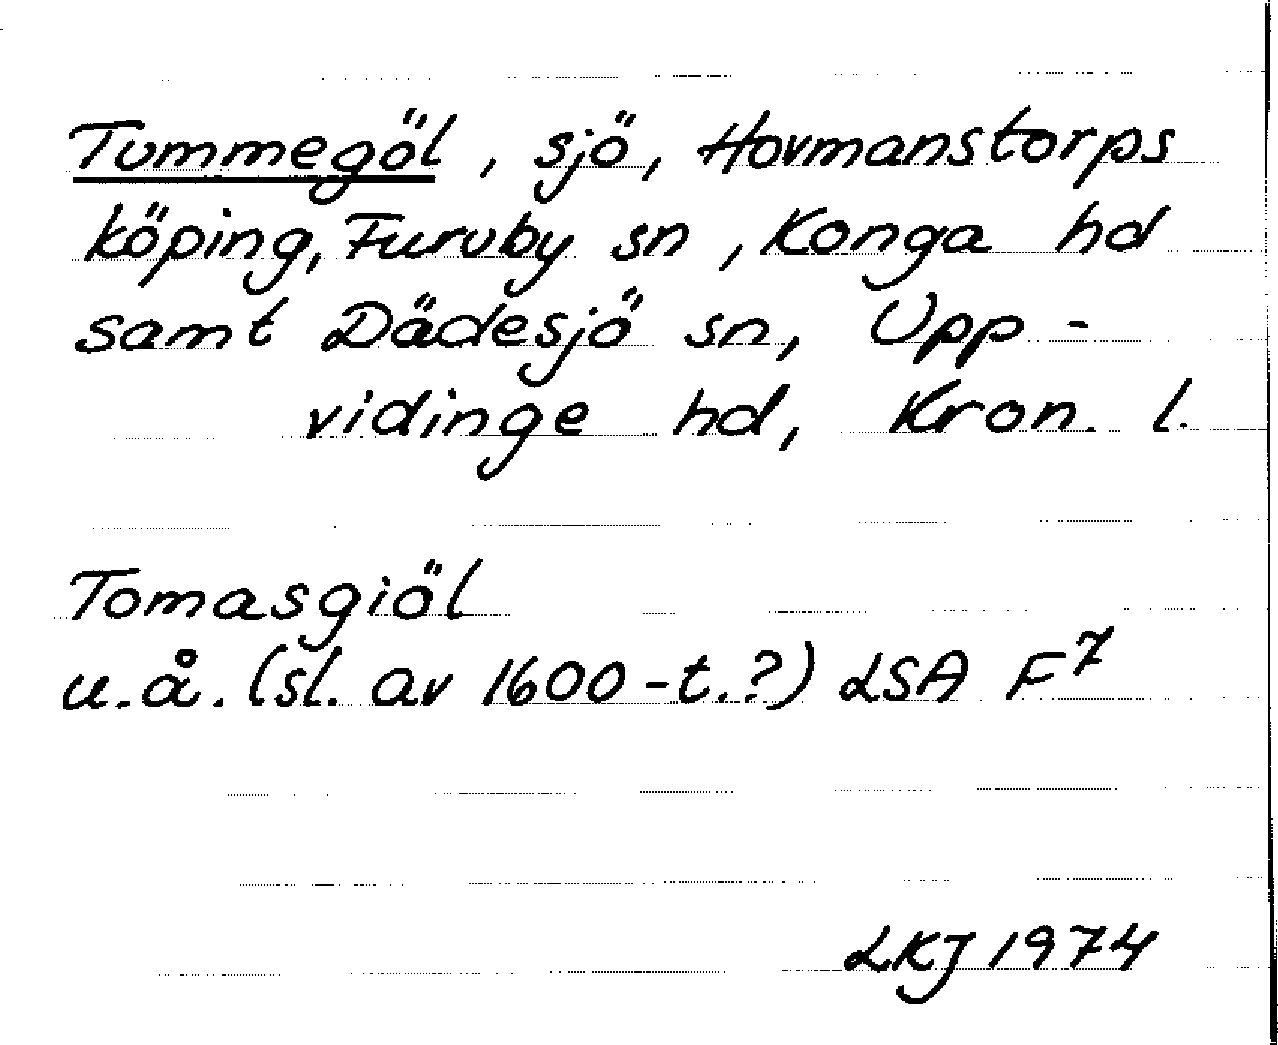 Tummegöl, sjö, Hovmanstorps
köping, Furuby sn, Konga hd
samt Dädesjö sn, Upp-
vidinge hd, Kron. l.
Tomasgiöl
u.å. (sl. av 1600-t.?) LSA F7
LKJ 1974